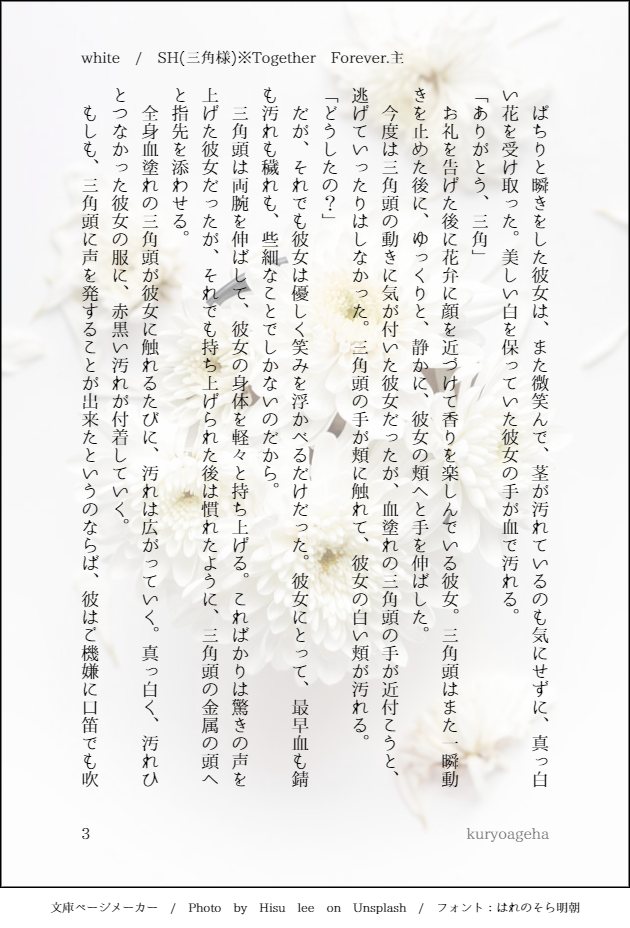 white / SH(三角様)※Together Forever.主
ぱちりと瞬きをした彼女は、また微笑んで、茎が汚れているのも気にせずに、真っ白
い花を受け取った。美しい白を保っていた彼女の手が血で汚れる。
「ありがとう、三角」
お礼を告げた後に花弁に顔を近づけて香りを楽しんでいる彼女。三角頭はまた一瞬動
きを止めた後に、ゆっくりと、静かに、彼女の頬へと手を伸ばした。
今度は三角頭の動きに気が付いた彼女だったが、血塗れの三角頭の手が近付こうと、
逃げていったりはしなかった。三角頭の手が頬に触れて、彼女の白い頬が汚れる。
「どうしたの?」
だが、それでも彼女は優しく笑みを浮かべるだけだった。彼女にとって、最早血も錆
も汚れも穢れも、些細なことでしかないのだから。
三角頭は両腕を伸ばして、彼女の身体を軽々と持ち上げる。こればかりは驚きの声を
上げた彼女だったが、それでも持ち上げられた後は慣れたように、三角頭の金属の頭へ
と指先を添わせる。
全身血塗れの三角頭が彼女に触れるたびに、汚れは広がっていく。真っ白く、汚れひ
とつなかった彼女の服に、赤黒い汚れが付着していく。
もしも、三角頭に声を発することが出来たというのならば、彼はご機嫌に口笛でも吹
3
kuryoageha
文庫ページメーカー / Photo by Hisu lee on Unsplash / フォント:はれのそら明朝